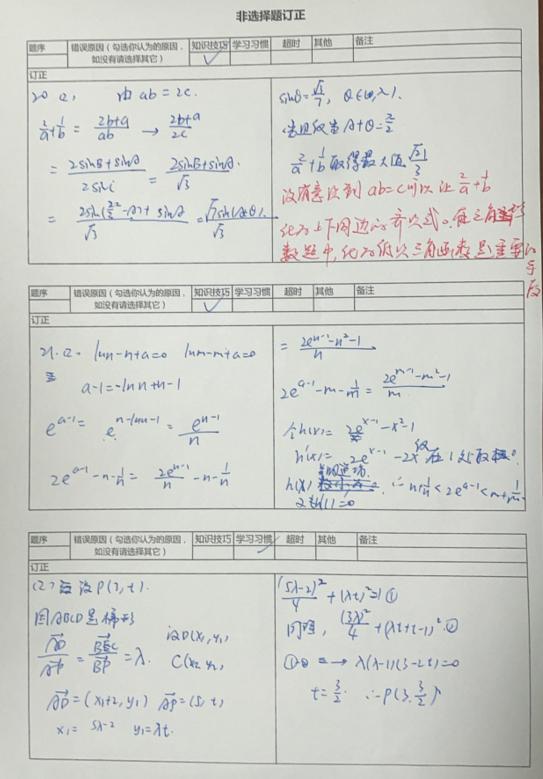 非选择题订正
题序 错误原因（勾选你认为的原因，如没有请选择其它） 知识技巧 学习习惯 超时 其他 备注
✓
订正
20 (2), 由 ab=2c.
2/a+1/b = (2b+a)/ab → (2b+a)/2c
= (2sinB+sinA)/2sinC = (2sinB+sinA)/√3
sinθ=√3/√7,
2/a+1/b 取得最大值 √21/3
没有意识到 ab=c 可以让 2/a+1/b
化为上下同边的齐次式。在三角
数题中，化为低次三角函数是重要的手段
题序 错误原因（勾选你认为的原因，如没有请选择其它） 知识技巧 学习习惯 超时 其他 备注
✓
订正
21. (2). lnn-n+a=0 lnm-m+a=0
a-1=-lnn+n-1
e^(a-1) = e^(n-lnn-1) = e^(n-1)/n
2e^(a-1)-n-1/n = 2e^(n-1)/n -n-1/n
= (2e^(n-1)-n²-1)/n
2e^(a-1)-m-1/m = (2e^(m-1)-m²-1)/m
令h(x)= 2e^(x-1)-x²-1
h'(x)= 2e^(x-1)-2x 仅在1处取
h(x) 单调递增.
∴ n+1/n<2e^(a-1)<m+1/m
又h(1)=0
题序 错误原因（勾选你认为的原因，如没有请选择其它） 知识技巧 学习习惯 超时 其他 备注
✓
订正
(2) 设P(3, t).
因ABCD是梯形
AD/AP = BC/BP = λ. 设D(x₁, y₁)
C(x₂, y₂)
AD=(x₁+2, y₁) AP=(5, t)
x₁= 5λ-2 y₁=λt.
(5λ-2)²/4 + (λt)²=1 ①
同理,
①② ⇒ λ(λ-1)(3-2t)=0
t=3/2. ∴P(3, 3/2)